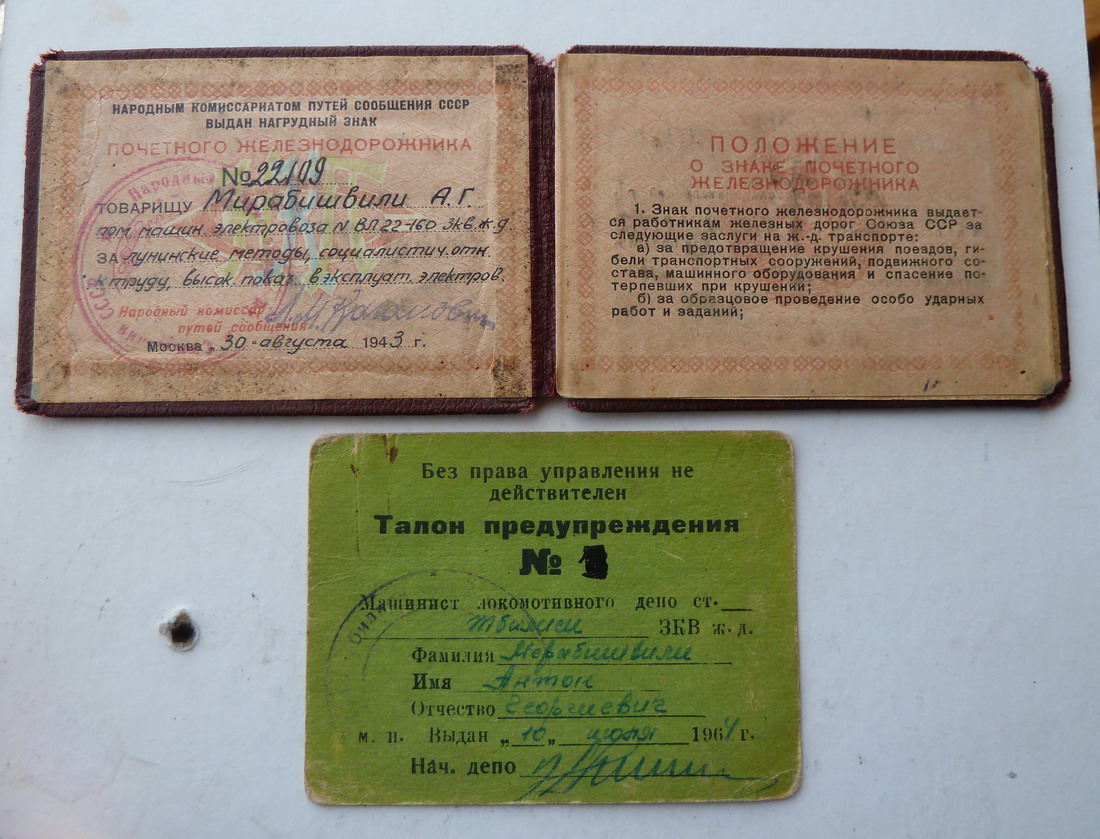 НАРОДНЫМ КОМИССАРИАТОМ ПУТЕЙ СООБЩЕНИЯ СССР
ВЫДАН НАГРУДНЫЙ ЗНАК
ПОЧЕТНОГО ЖЕЛЕЗНОДОРОЖНИКА
№ 22109
ТОВАРИЩУ Мирабишвили А.Г.
пом. машин. электровоза N ВЛ 22-160 Зкв.ж.д.
ЗА лунинские методы, социалистич. отн.
к труду, высок. показ. в эксплуат. электров.
Народный комиссар
путей сообщения
Москва „30“ августа 1943 г.
ПОЛОЖЕНИЕ
О ЗНАКЕ ПОЧЕТНОГО
ЖЕЛЕЗНОДОРОЖНИКА
1. Знак почетного железнодорожника выдает-
ся работникам железных дорог Союза ССР за
следующие заслуги на ж.-д. транспорте:
а) за предотвращение крушения поездов, ги-
бели транспортных сооружений, подвижного со-
става, машинного оборудования и спасение по-
терпевших при крушении;
б) за образцовое проведение особо ударных
работ и заданий;
Без права управления не
действителен
Талон предупреждения
№
Машинист локомотивного депо ст.
Тбилиси ЗКВ ж. д.
Фамилия Мерабишвили
Имя Антон
Отчество Георгиевич
м. п. Выдан „10„ июля 1964 г.
Нач. депо